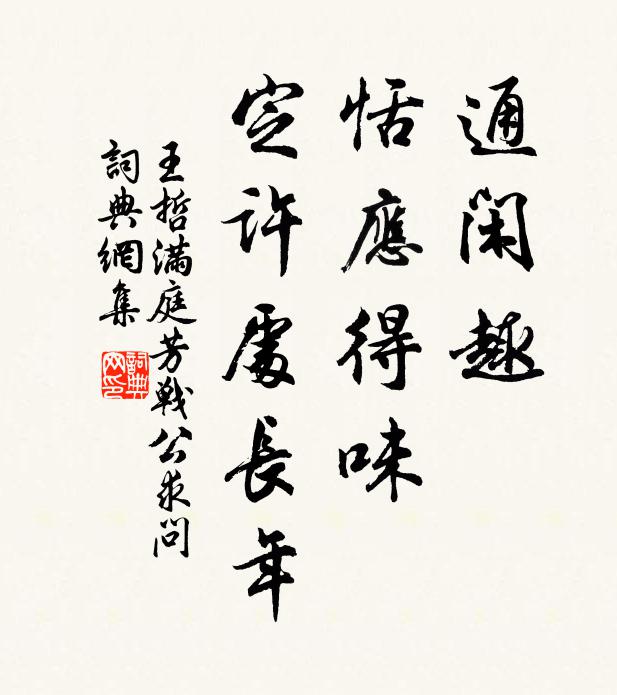 通閑趣
恬應得味
定許處長年
王哲滿庭芳戰公求問
詞典網集
詞典網印